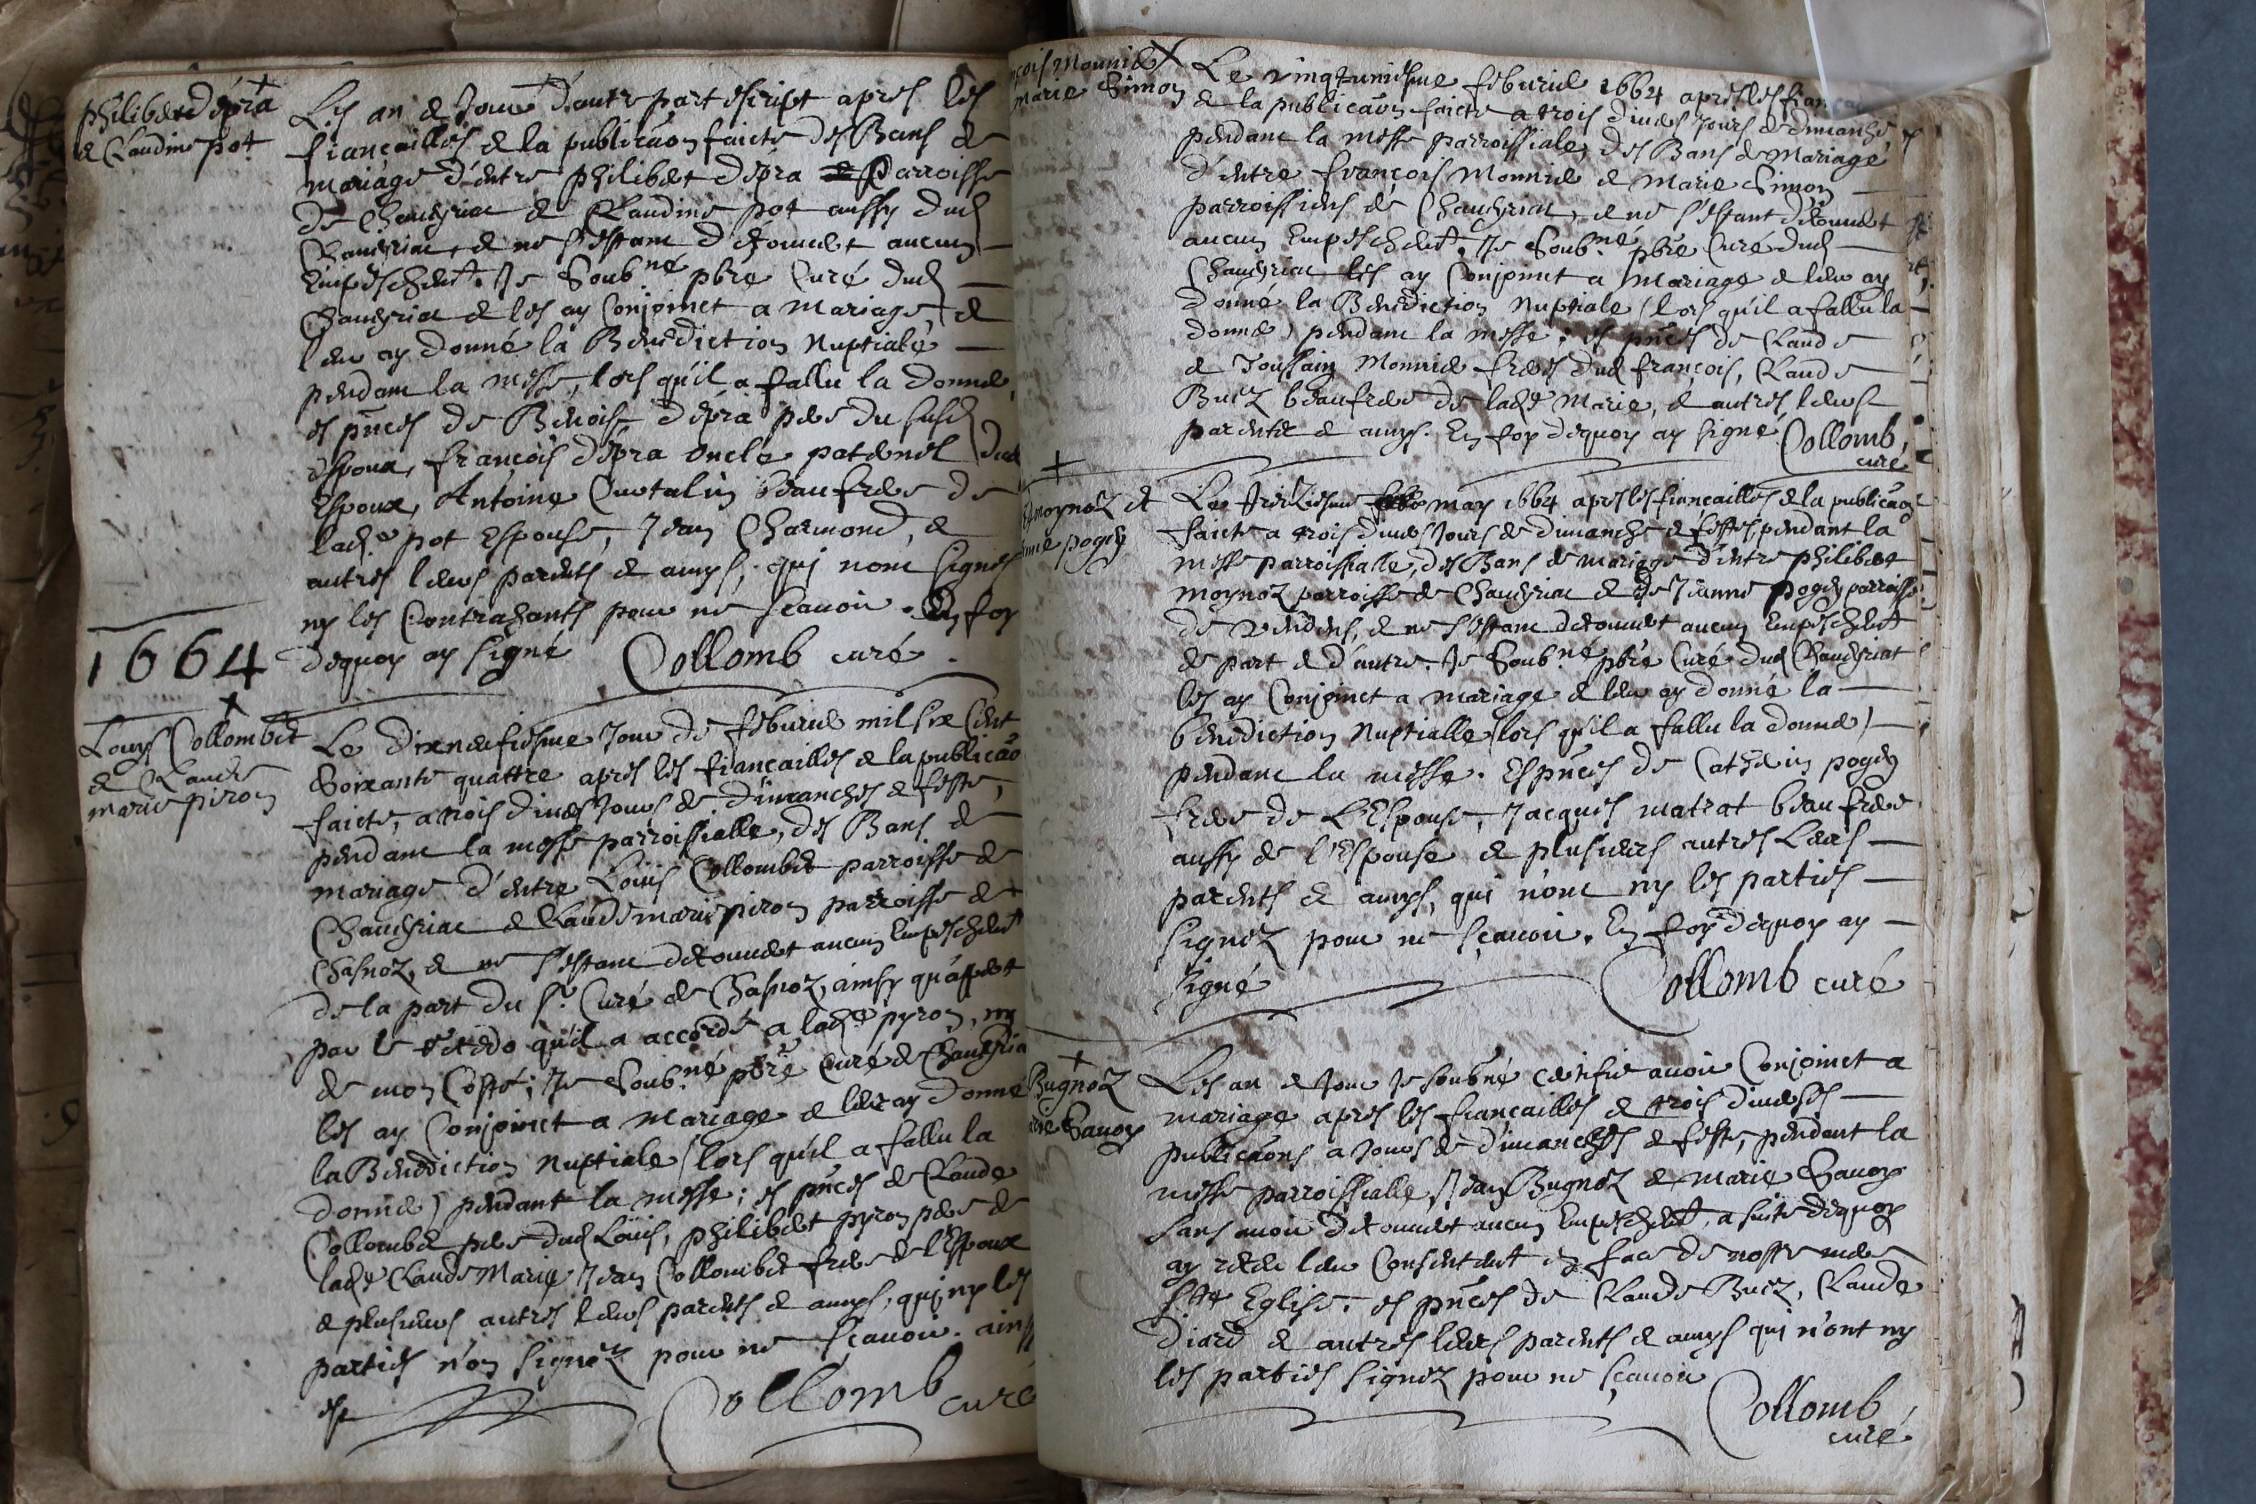 philibert dépra
et Claudine pot
Les an et Jour d'autre part escript apres les
fiançailles et la publicãon faicte des Bans de
mariage d'entre philibert dépra Parroisse
de Chaveyriac et Claudine pot aussy dud
Chaveyriac, et ne s'estant descouvert aucun
Empeschemt. Je Soubné pbre Curé dud
Chaveyriac et les ay Conjoinct a Mariage, et
leur ay donné la Benediction Nuptiale
pendant la messe, lors qu'il a fallu la donner
es pnces de Benoist dépra pere du susd
espoux, françois dépra oncle paternel dud
Espoux, Antoine Curtalin beaufrere de
lade pot Espouse, Jean Charmond, et
autres leurs parents et amys, qui n'ont signés
ny les Contrahants pour ne sçavoir. En foy
dequoy ay signé Collomb curé.
1664
Louys Collombet
et Claude
marie piron
Le dixneufiesme Jour de feburier mil six Cent
Soixante quattre apres les fiancailles et la publicão
faicte, a trois divers Jours de dimanches et feste,
pendant la messe parroissialle, des Bans de
mariage d'entre Loüis Collombet parroisse de
Chaveyriac et Claude marie piron parroisse de
Chasnoz, et ne s'estant descouvert aucun Empeschemt
de la part du Sr. Curé de Chasnoz, ainsy qu'appert
par le recedo qu'il a accordé a lade pyron, ny
de mon Costé; Je Soubné pbre Curé de Chaveyria
les ay Conjoinct a Mariage et leur ay donné
la Benediction Nuptiale (lors qu'il a fallu la
donner) pendant la messe; es pnces de Claude
Collombet pere dud Loüis, philibert pyron pere de
lade Claude Marie, Jean Collombet frere de l'Espoux
et plusieurs autres leurs parents et amys, qui ny les
parties n'on signéz pour ne sçavoir. ainsy
est Collomb
curé
Mounier
marie Simon
Le vingtuniesme feburier 1664 apres les fiançai
et la publicãon faicte a trois divers Jours de dimanche
pendant la messe parroissiale, des Bans de Mariage
d'entre françois Mounier et Marie Simon
parroissiens de Chaveyriac, et ne s'estant descouvert
aucun Empeschemt. Je Soubné. pbre Curé dud
Chaveyriac les ay Conjoinct a Mariage et leur ay
donné la Benediction Nuptiale (lors qu'il a fallu la
donner) pendant la messe; es pnces de Claude
et Toussain Mounier freres dud françois, Claude
Buez beaufrere de lade Marie, et autres leurs
parents et amys. En foy dequoy ay signé Collomb
curé
moynoz et
pogey
Le treiziesme may 1664 apres les fiancailles et la publicãon
faicte a trois divers Jours de dimanche et festes, pendant la
messe parroissialle, des Bans de mariage d'entre philibert
moynoz parroisse de Chaveyriac et de Jeanne pogey parroisse
de Vendens, et ne s'estant descouvert aucun Empeschemt
de part et d'autre. Je Soubné pbre Curé dud Chaveyriat
les ay Conjoinct a mariage et leur ay donné la
benediction Nuptialle (lors qu'il a fallu la donner)
pendant la messe. Es pnces de Catherin pogey
frere de L'Espouse, Jacques matrat beaufrere
aussy de l'Espouse et plusieurs autres Leurs
parents et amys, qui n'ont ny les parties
signez pour ne sçavoir. En foy dequoy ay
signé Collomb curé
Bugnoz
Savoy
Les an et Jour Je soubné certifie avoir Conjoinct a
mariage apres les fiancailles et trois diverses
publicãons a Jours de dimanches et feste, pendant la
messe parroissialle, Jean Bugnoz et marie Savoy
sans avoir descouvert aucun Empeschemt, a suite dequoy
ay receu leur Consentemt en face de nostre mere
Ste Eglise. es pnces de Claude Buez, Claude
diard et autres leurs parents et amys qui n'ont ny
les parties signez pour ne sçavoir
Collomb
curé